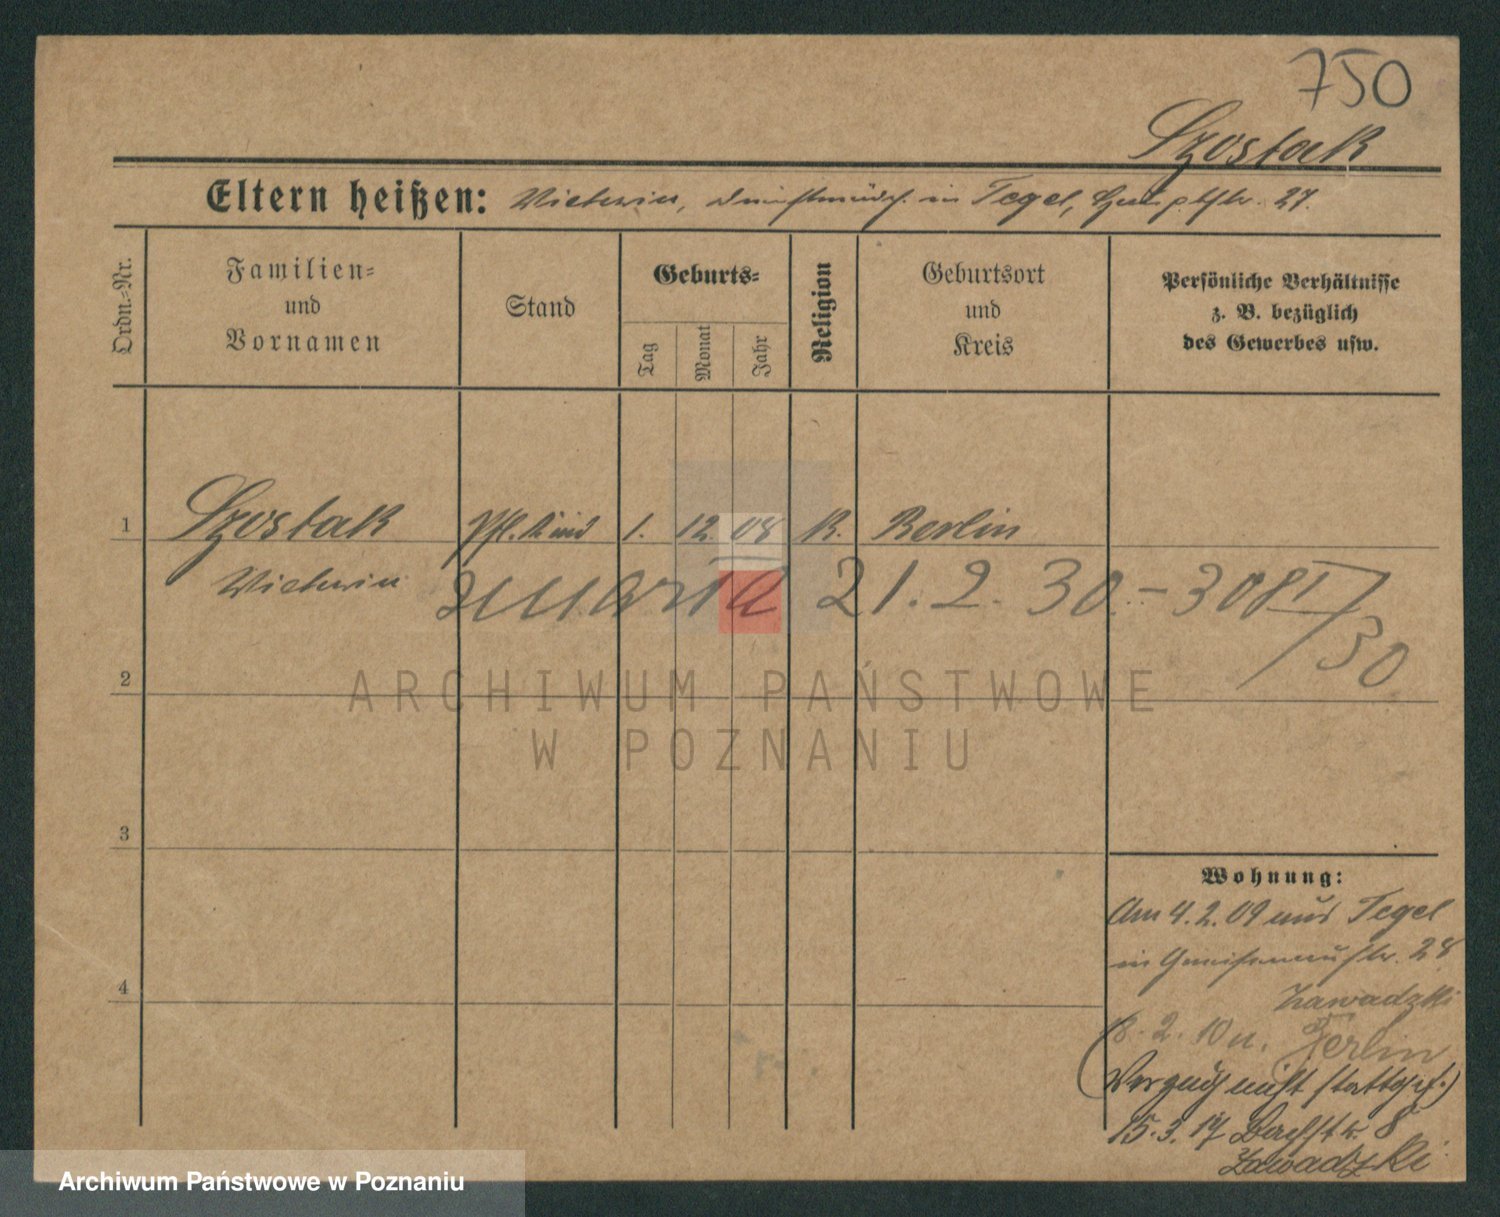 750
Szostak
Eltern heißen: Victoria, Dienstmädch. in Tegel, Hauptstr. 27.
Ordn.-Nr.
Familien- und Vornamen
Stand
Geburts-
Tag
Monat
Jahr
Religion
Geburtsort und Kreis
Persönliche Verhältnisse
z. B. bezüglich
des Gewerbes usw.
1 Szostak Pfl. Kind 1. 12. 08 K. Berlin
Victoria
zmarła 21. 2. 30. - 308
/30
2
ARCHIWUM PAŃSTWOWE
W POZNANIU
3
Wohnung:
Am 4. 2. 09 aus Tegel
in Gneisenaustr. 28
Zawadzki
8. 2. 10 n. Berlin
(Verzug nicht stattgef.)
4
15. 3. 17 8
Zawadzki
Archiwum Państwowe w Poznaniu